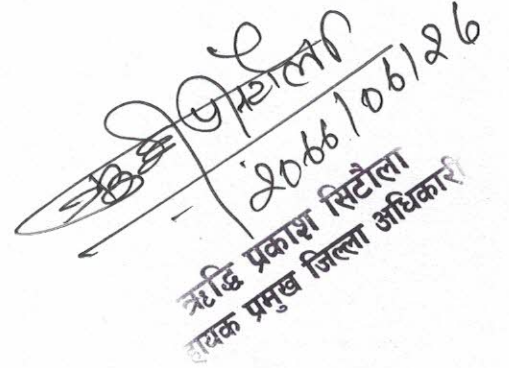 2066/06/26
ऋद्धि प्रकाश सिटौला
हायक प्रमुख जिल्ला अधिकारी